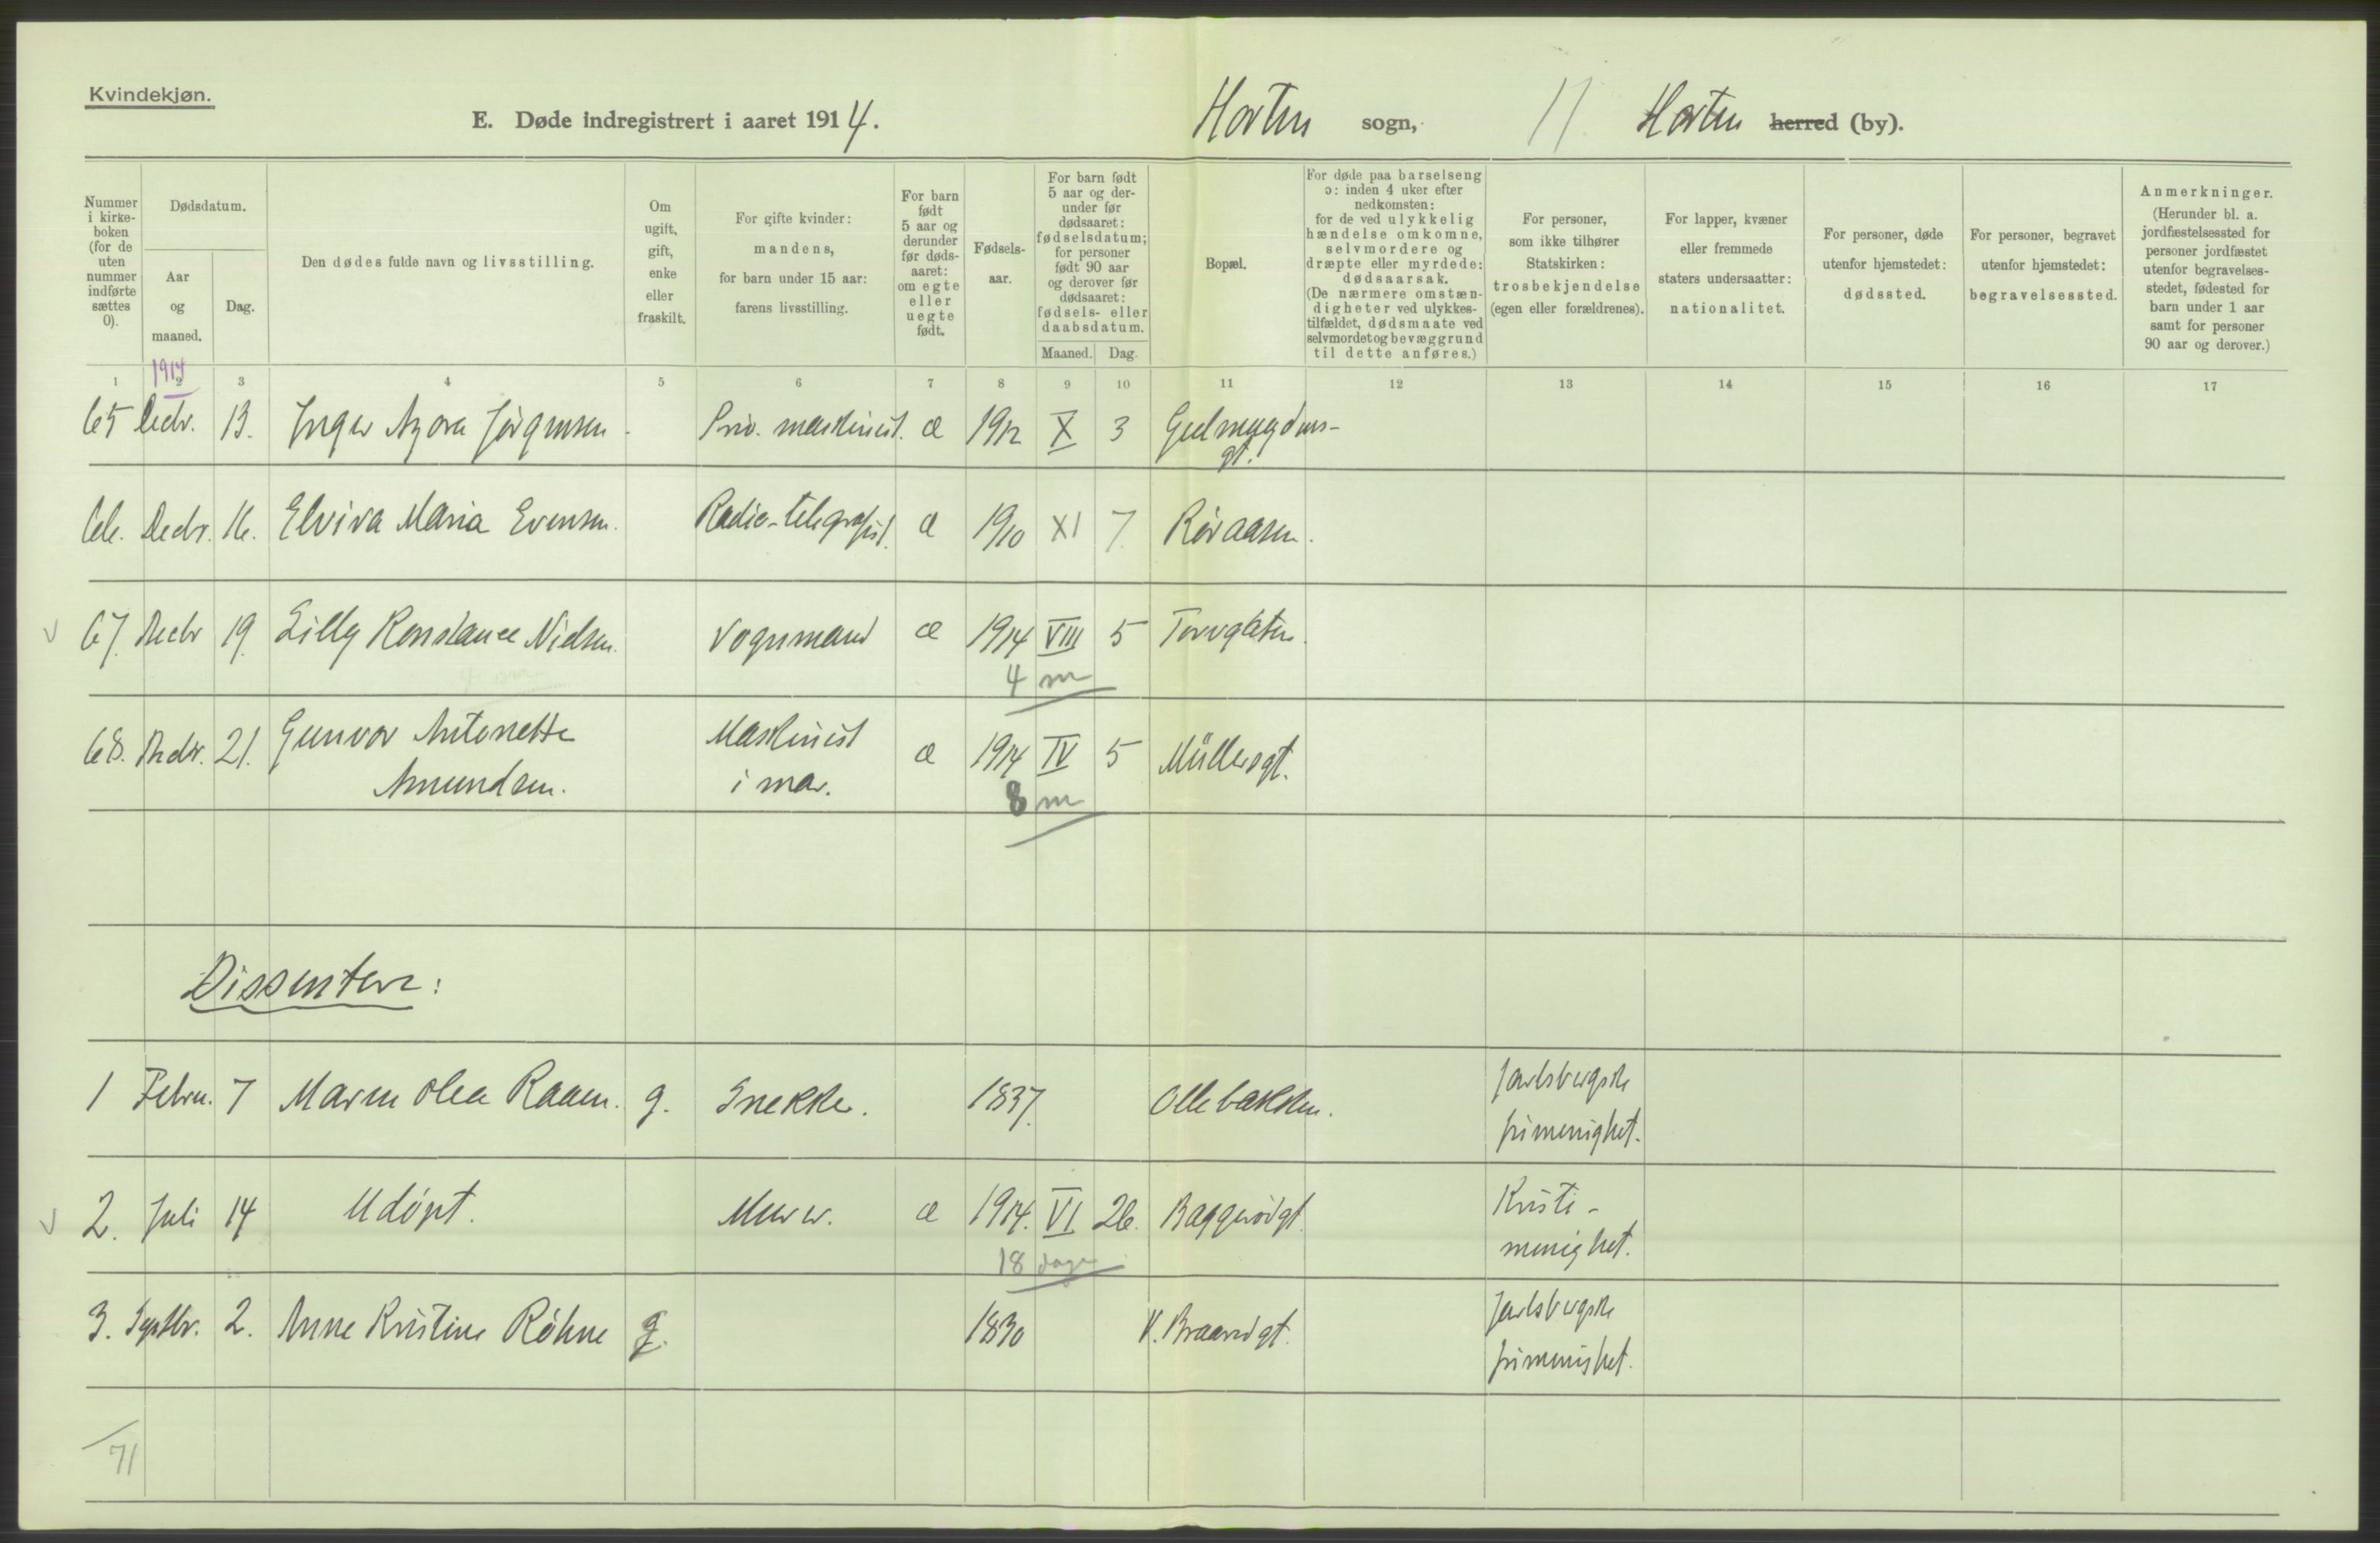 Kvindekjøn.
E. Døde indregistrert i aaret 1914.
Horten sogn, 11 Horten herred (by).
Nummer i kirke-boken (for de uten nummer indførte sættes 0).
Dødsdatum.
Aar og maaned.
Dag.
Den dødes fulde navn og livsstilling.
Om ugift, gift, enke eller fraskilt.
For gifte kvinder: mandens, for barn under 15 aar: farens livsstilling.
For barn født 5 aar og derunder før døds-aaret: om egte eller uegte født.
Fødsels-aar.
For barn født 5 aar og der-under før dødsaaret: fødselsdatum; for personer født 90 aar og derover før dødsaaret: fødsels- eller daabsdatum.
Maaned. Dag.
Bopæl.
For døde paa barselseng ɔ: inden 4 uker efter nedkomsten: for de ved ulykkelig hændelse omkomne, selvmordere og dræpte eller myrdede: dødsaarsak. (De nærmere omstæn-digheter ved ulykkes-tilfældet, dødsmaate ved selvmordet og bevæggrund til dette anføres.)
For personer, som ikke tilhører Statskirken: trosbekjendelse (egen eller forældrenes).
For lapper, kvæner eller fremmede staters undersaatter: nationalitet.
For personer, døde utenfor hjemstedet: dødssted.
For personer, begravet utenfor hjemstedet: begravelsessted.
Anmerkninger. (Herunder bl. a. jordfæstelsessted for personer jordfæstet utenfor begravelses-stedet, fødested for barn under 1 aar samt for personer 90 aar og derover.)
1914
1 2 3 4 5 6 7 8 9 10 11 12 13 14 15 16 17
65 Decbr. 13. Inger Azora Jörgensen. Priv. maskinist. æ 1912 X 3
gt.
66. Decbr. 16. Elvira Maria Evensen. Radio-telegrafist. æ 1910 XI 7. Röraasen.
67. Decbr 19. Lilly Konstance Nielsen. Vognmand æ 1914 VIII 5 Torvgaten.
4 m
68. Decbr. 21. Gunvor Antonette Amundsen. Maskinist i mar. æ 1914 IV 5 Müllersgt.
8 m
Dissentere:
1 Febru. 7 Maren Olea Raaen. g. Snekker. 1837. Ollebakken. Jarlsbergske frimenighet.
2. Juli 14 Udöpt. Murer. æ 1914. VI 26. Baggerödgt. Kristi-menighet.
18 dage
3. Septbr. 2. Anne Kristine Röhne g. 1830 V. Braarudgt. Jarlsbergske frimenighet.
71